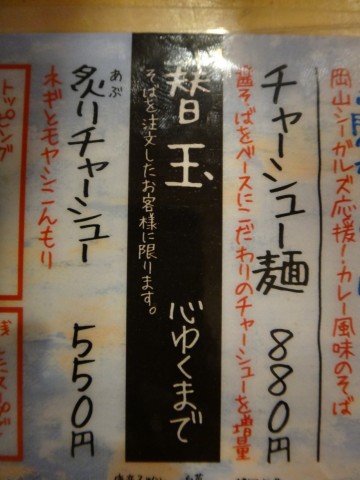 岡山シーガルズ応援！カレー風味のそば
チャーシュー麺 880円
醤そばをベースにこだわりのチャーシューを増量
替玉 心ゆくまで
そばを注文したお客様に限ります。
あぶ
炙りチャーシュー 550円
木ギとモヤシこんもり
トッピング